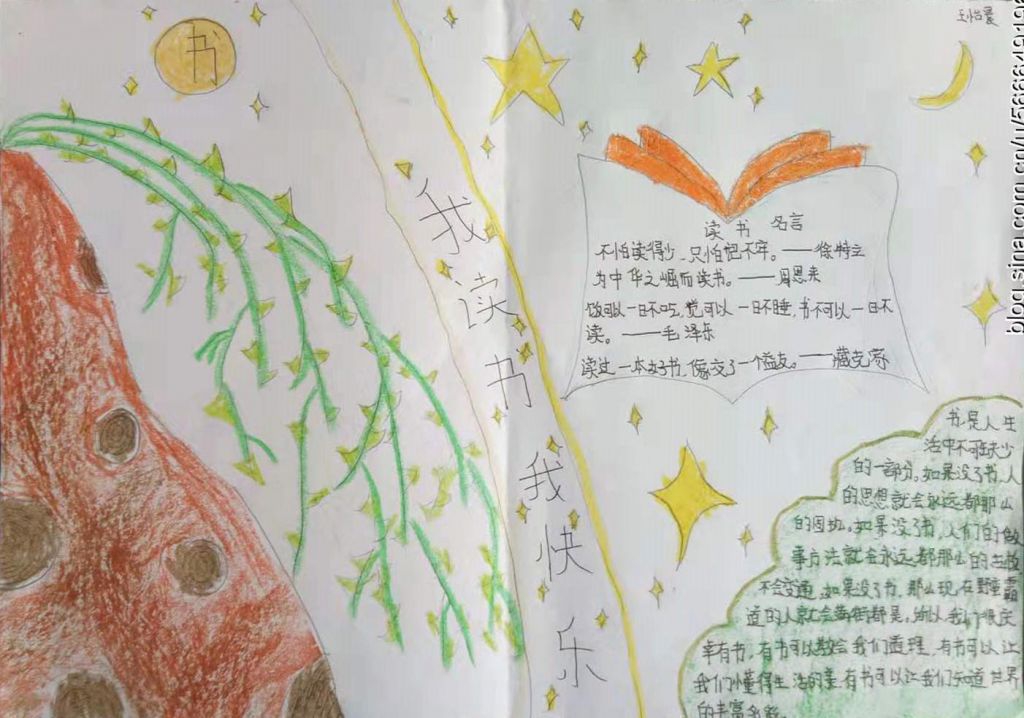 书
王怡晨
我读书我快乐
读书名言
不怕读得少,只怕记不牢。——徐特立
为中华之崛而读书。——周恩来
饭可以一日不吃,觉可以一日不睡,书不可以一日不
读。——毛泽东
读过一本好书,像交了一个益友。——臧克家
书是人生
活中不可缺少
的一部分。如果没了书,人
的思想就会永远都那么
的固执。如果没了书,人们的做
事方法就会永远都那么的古板
不会变通。如果没了书,那么现在野蛮霸
道的人就会满街都是。所以我们很庆
幸有书,有书可以教会我们道理,有书可以让
我们懂得生活的美,有书可以让我们知道世界
的丰富多彩。
blog.sina.com.cn/u/5666491